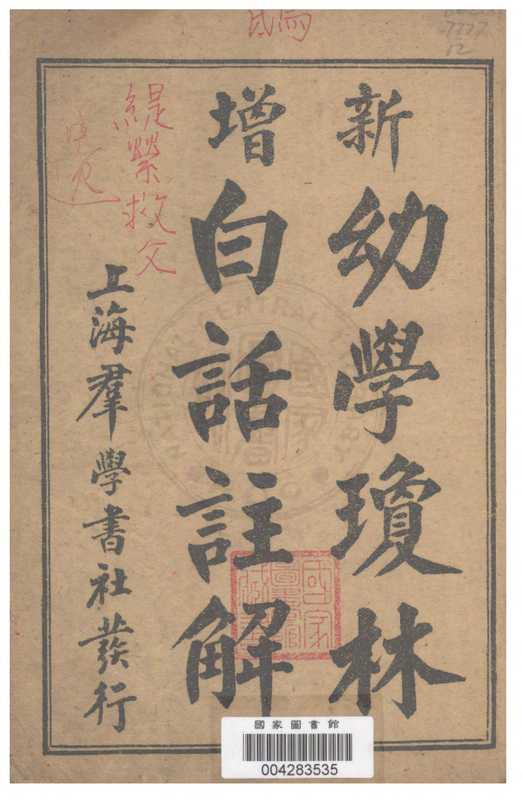 新增
幼學瓊林
白話註解
上海羣學書社發行
緹縈救父
國家圖書館
004283535